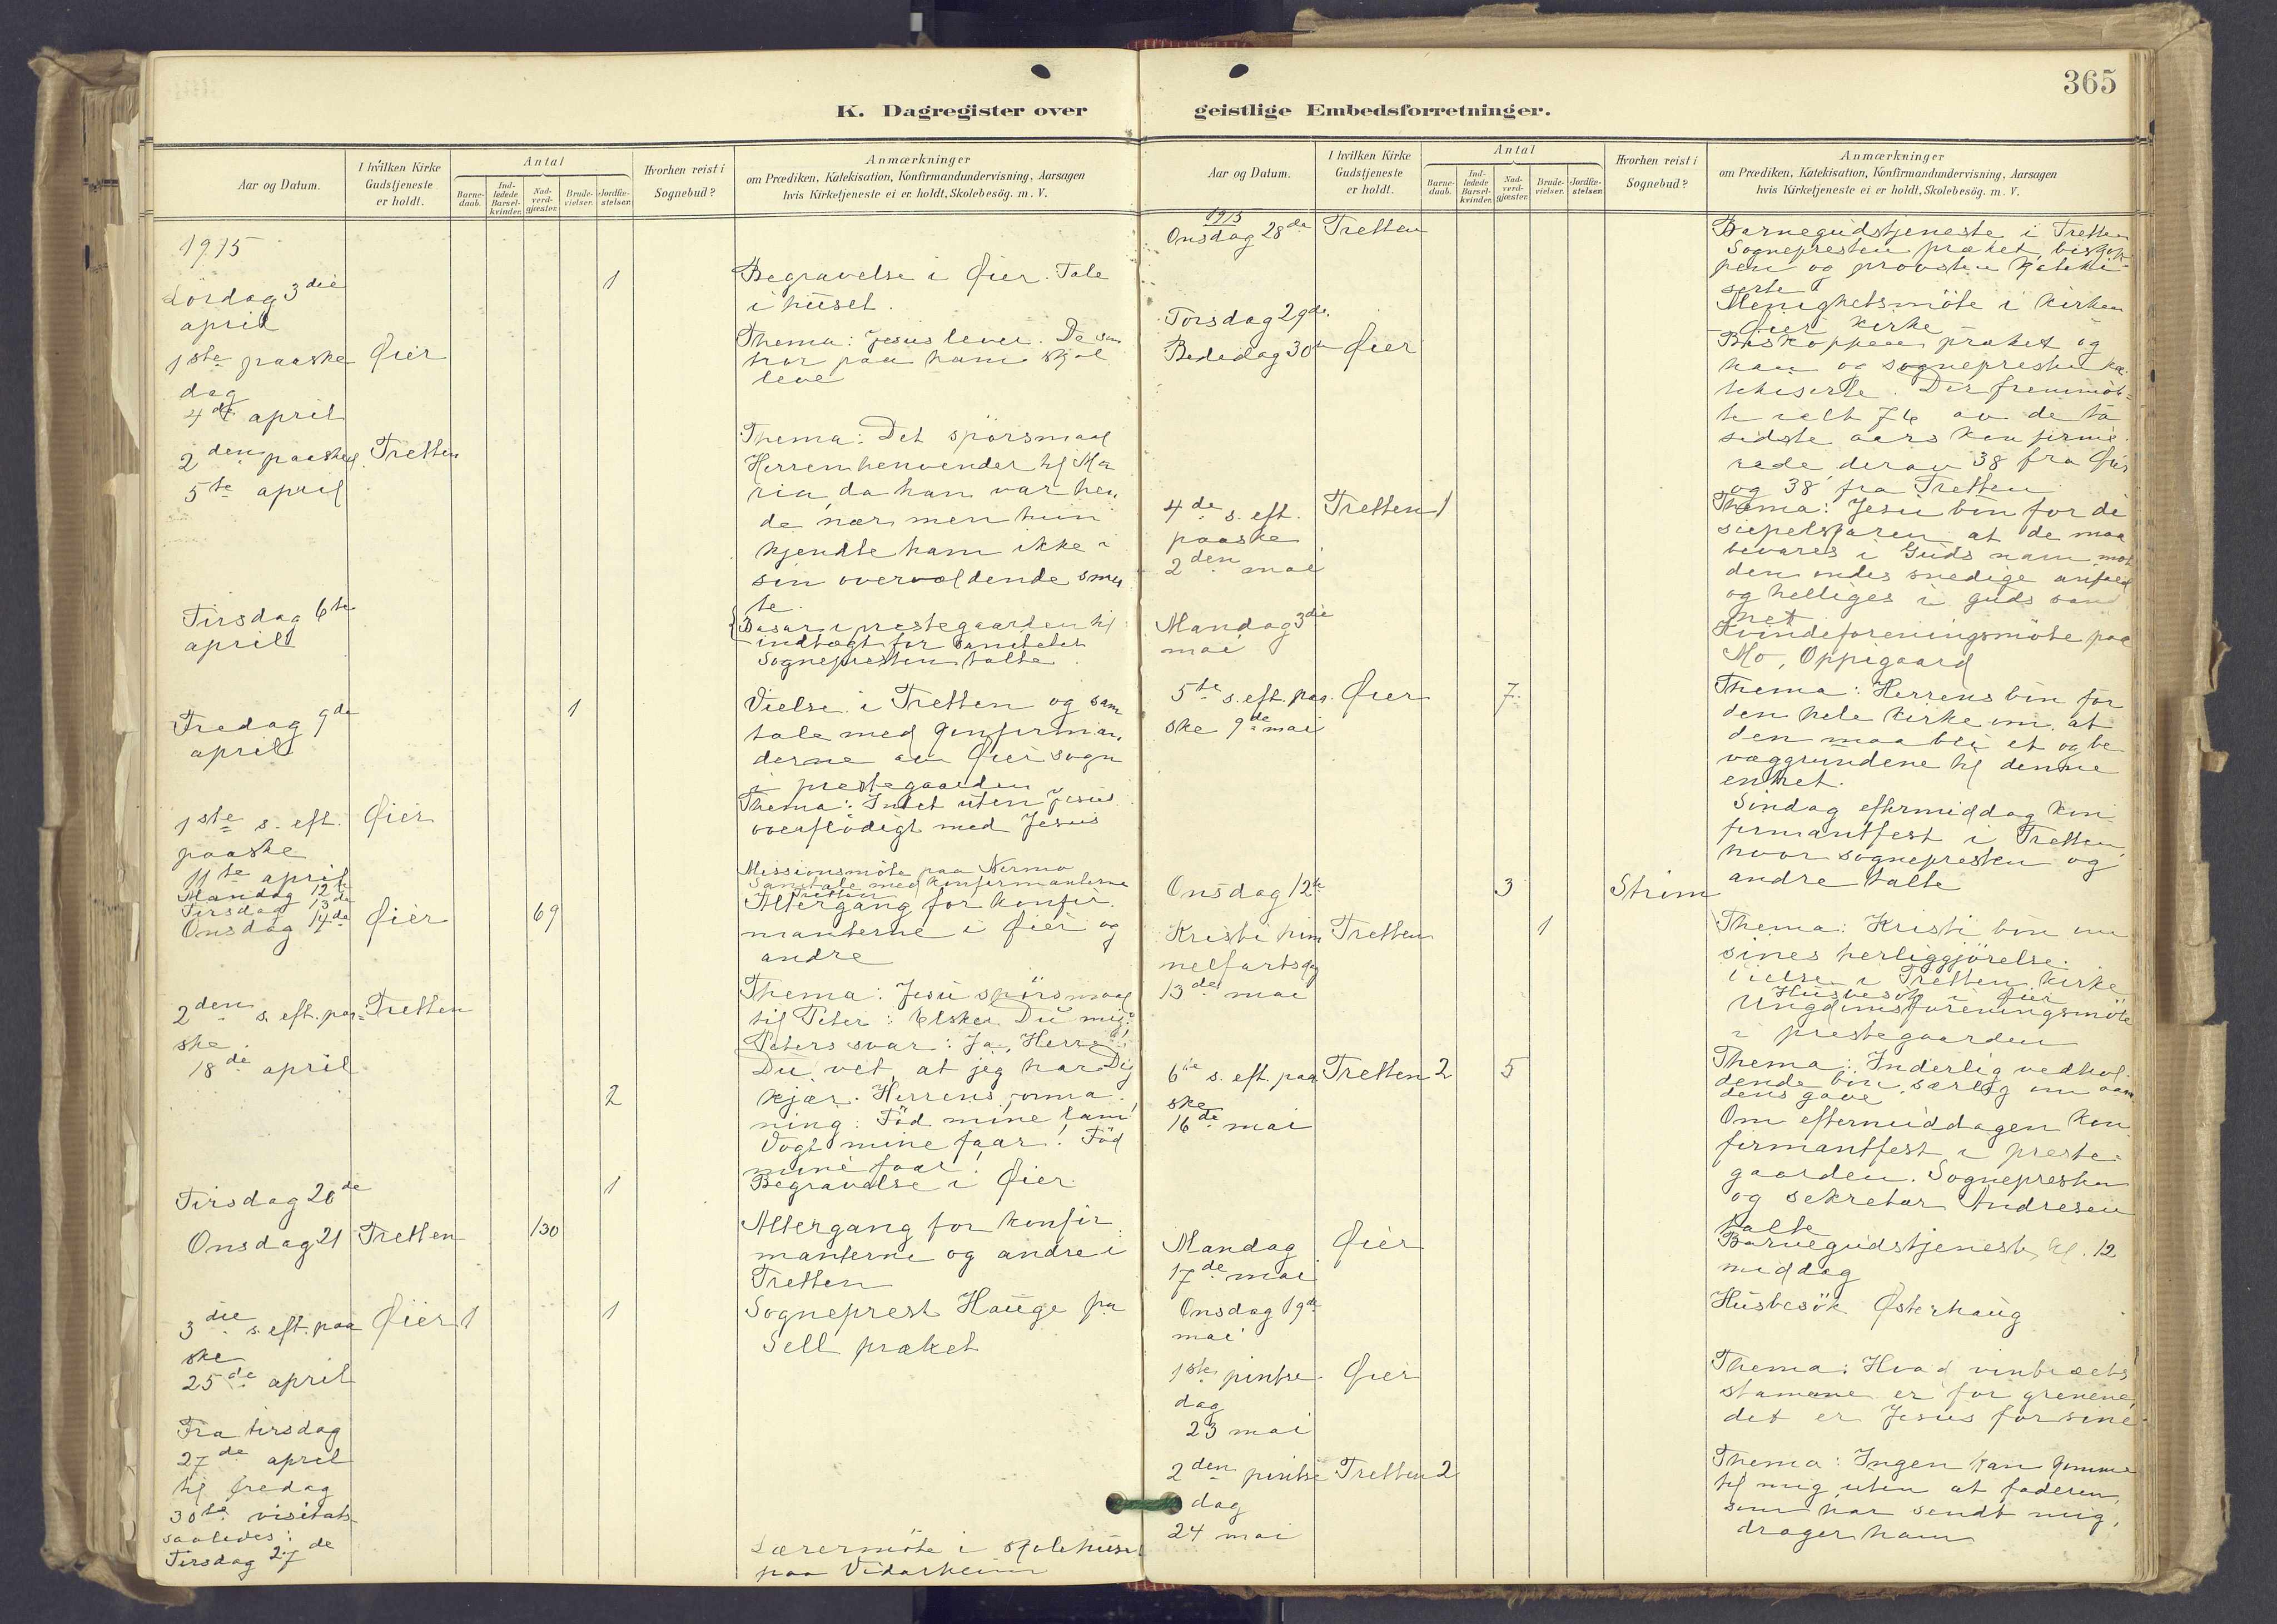 365
K. Dagregister over geistlige Embedsforretninger.
Aar og Datum.
I hvilken Kirke
Gudstjeneste
er holdt.
Antal
Barne-
daab.
Ind-
ledede
Barsel-
kvinder.
Nad-
verd-
gjæster.
Brude-
vielser.
Jordfæ-
stelser.
Hvorhen reist i
Sognebud?
Anmærkninger
om Prædiken, Katekisation, Konfirmandundervisning, Aarsagen
hvis Kirketjeneste ei er holdt, Skolebesög. m. V.
1915
Lördag 3die
april
1
Begravelse i Øier. Tale
i huset.
1ste paaske
dag
4de april
Øier
Thema: Jesus lever. De som
tror paa ham skal
leve
2den paasked.
5te april
Tretten
Thema: Det spörsmaal
Herren henvender til Ma
ria, da han var hen
de nær, men hun
kjendte ham ikke i
sin overvældende smer
te.
Tirsdag 6te
april
Basar i prestegaarden til
indtægt for sanitetet
Sognepresten talte.
Fredag 9de
april
1
Vielse i Tretten og sam
tale med konfirman
derne av Øier sogn
i prestegaarden
1ste s. eft.
paaske
11te april
Øier
Thema: Intet uten Jesus
overflödigt med Jesus
Mandag 12te
Missionsmöte paa Nermo
Tirsdag 13de
Samtale med konfirmanterne
Tretten
Onsdag 14de
Øier
69
Altergang for konfir-
manterne i Øier og
andre
2den s. eft. paa-
ske
18de april
Tretten
2
Thema: Jesu spörsmaal
til Peter: Elsker Du mig?
Peters svar: Ja, Herre!
Du vet, at jeg har Dig
kjær. Herrens forma-
ning: Föd mine lam!
Vogt mine faar! Föd
mine faar!
Tirsdag 20de
1
Begravelse i Øier
Onsdag 21
Tretten
130
Altergang for konfir
manterne og andre i
Tretten
3die s. eft. paa
ske
25de april
Øier
1
1
Sogneprest Hauge fra
Sell præket
Fra tirsdag
27de april
til fredag
30te visitats
saaledes:
Tirsdag 27de
Lærermöte i skolehuset
paa Vidarheim
Aar og Datum.
I hvilken Kirke
Gudstjeneste
er holdt.
Antal
Barne-
daab.
Ind-
ledede
Barsel-
kvinder.
Nad-
verd-
gjæster.
Brude-
vielser.
Jordfæ-
stelser.
Hvorhen reist i
Sognebud?
Anmærkninger
om Prædiken, Katekisation, Konfirmandundervisning, Aarsagen
hvis Kirketjeneste ei er holdt, Skolebesög. m. V.
1915
Onsdag 28de
Tretten
Barnegudstjeneste i Tretten
Sognepresten præket, biskop-
pen og provsten kateki-
serte
Torsdag 29de.
Menighetsmöte i kirken
Øier kirke
Bededag 30te
Øier
Biskoppen præket og
han og sognepresten ka-
tekiserte. Der fremmöt-
te ialt 76 av de to
sidste aars konfirme-
rede derav 38 fra Øier
og 38 fra Tretten
4de s. eft.
paaske
2den mai
Tretten
1
Thema: Jesu bön for di
scipelskaren at de maa
bevares i Guds navn mot
den ondes snedige anfald
og helliges i Guds sand
het
Mandag 3die
mai
Kvindeforeningsmöte paa
Mo, Oppigaard
5te s. eft. paa
ske 9de mai
Øier
7
Thema: Herrens bön for
den hele kirke om, at
den maa bli et og be
væggrundene til denne
enhet.
Söndag eftermiddag kon
firmantfest i Tretten,
hvor sognepresten og
andre talte
Onsdag 12te
3
Strim
Kristi him
melfartsdag
13de mai
Tretten
1
Thema: Kristi bön om
sines herliggjörelse.
Vielse i Tretten kirke
Husbesök i Øier
Ungdomsforeningsmöte
i prestegaarden
6te s. eft. paa
ske
16de mai
Tretten
2
5
Thema: Inderlig vedhol-
dende bön særlig om aan
dens gave
Om eftermiddagen kon
firmantfest i preste-
gaarden. Sognepresten
og sekretær Andresen
talte
Mandag
17de mai
Øier
Barnegudstjeneste kl. 12
middag
Onsdag 19de
mai
Husbesök Østerhaug
1ste pintse
dag
23 mai
Øier
Thema: Hvad vintræets
stamme er for grenene,
det er Jesus for sine
2den pintse
dag
24 mai
Tretten
2
Thema: Ingen kan komme
til mig uten at faderen,
som har sendt mig,
drager ham